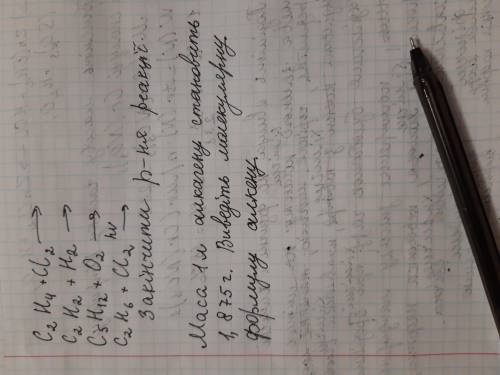 C₂H₄ + Cl₂ →
C₂H₂ + H₂ →
C₅H₁₂ + O₂ →
C₂H₆ + Cl₂ hν →
Закінчити р-ня реакцій
Маса 1 л алкагену становить
1,875 г. Виведіть молекулярну
формулу алкену.